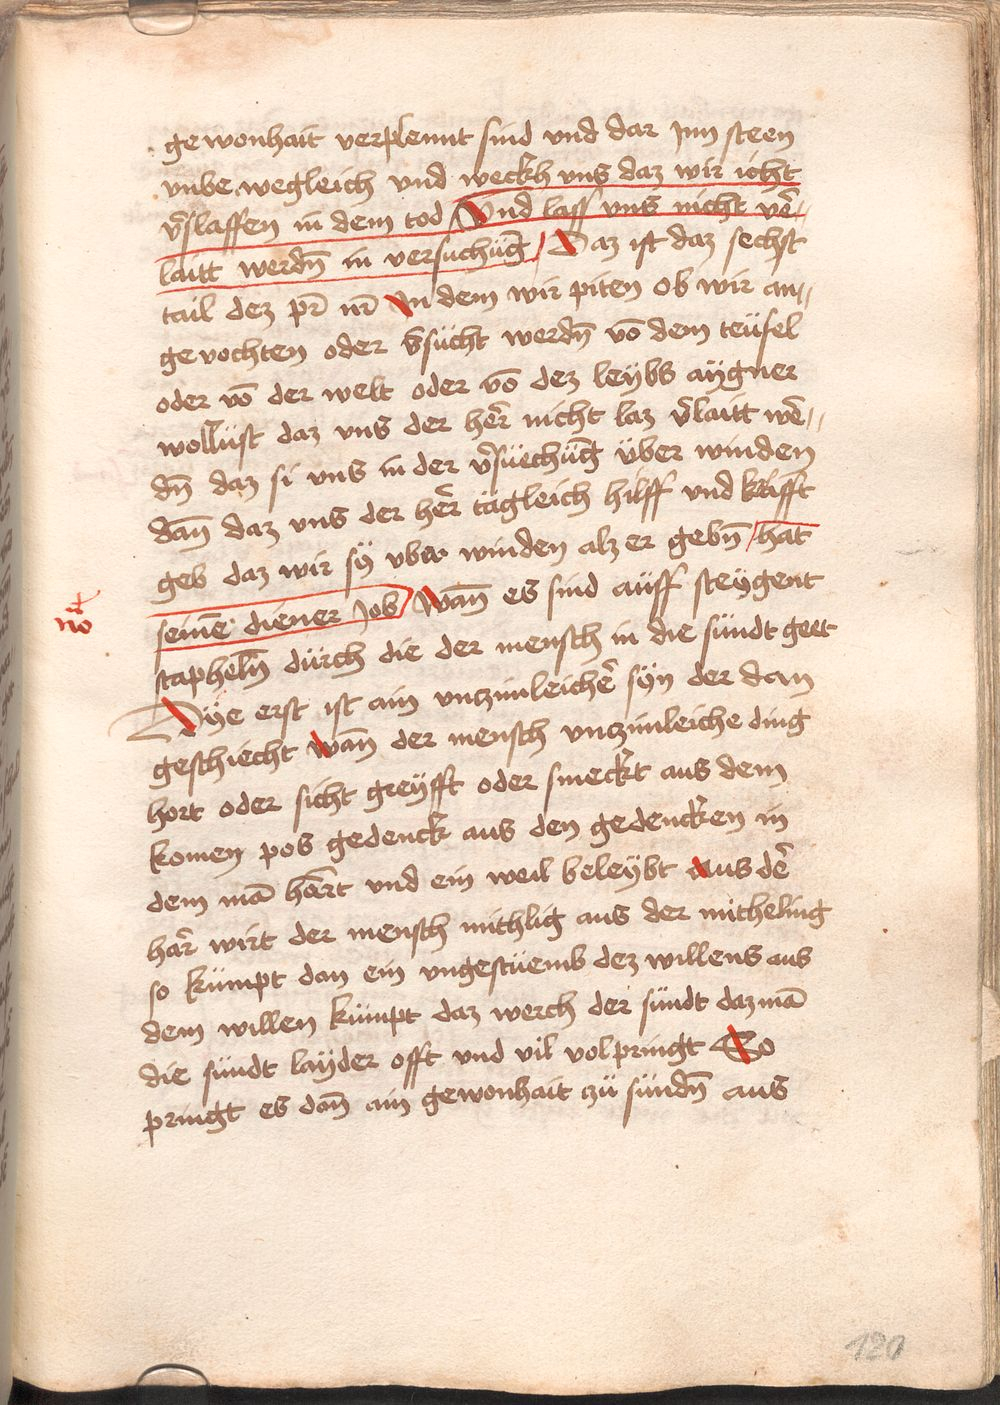 gewonhait verplennt sind vnd dar jnn steen
vnbe wegleich vnd weckh vns daz wir icht
v̄slaffen in dem tod Vnd lass vns nicht vē-
laitt werdn̄ in versuchūg Daz ist daz sechst
tail dez pr̄ nr̄ In dem wir piten ob wir an-
gevochten oder v̄sücht werdn̄ vō dem teüfel
oder vō der welt oder vō dez leybs aÿgner
wollüst daz vns der her̄ nicht laz v̄laitt wē-
dn̄ daz si vns in der v̄süechūg über winden
dan̄ daz vns der her̄ tägleich hilff vnd krifft
geb daz wir sÿ vber winden alz er gebn̄ hat
seinē diener Job Wan̄ es sind aüff steÿgent
nōt
stapheln̄ dürch die der mensch in die sündt geet
Dÿe erst ist ain vnczimleichē sÿn der dan
geschiecht wan̄ der mensch vnczimleiche ding
hort oder sicht greÿfft oder smeckt aus dem
komen pos gedenck aus den gedencken in
dem mā harrt vnd ein weil beleÿbt Aus dē
har̄ wirt der mensch mithlig aus der mitheling
so kümpt dan ein vngestüemb dez willens aus
dem willen kümpt daz werch der sündt daz mā
die sündt laÿder offt vnd vil volpringt So
pringt es dan̄ ain gewonhait zü sündn̄ aus
120